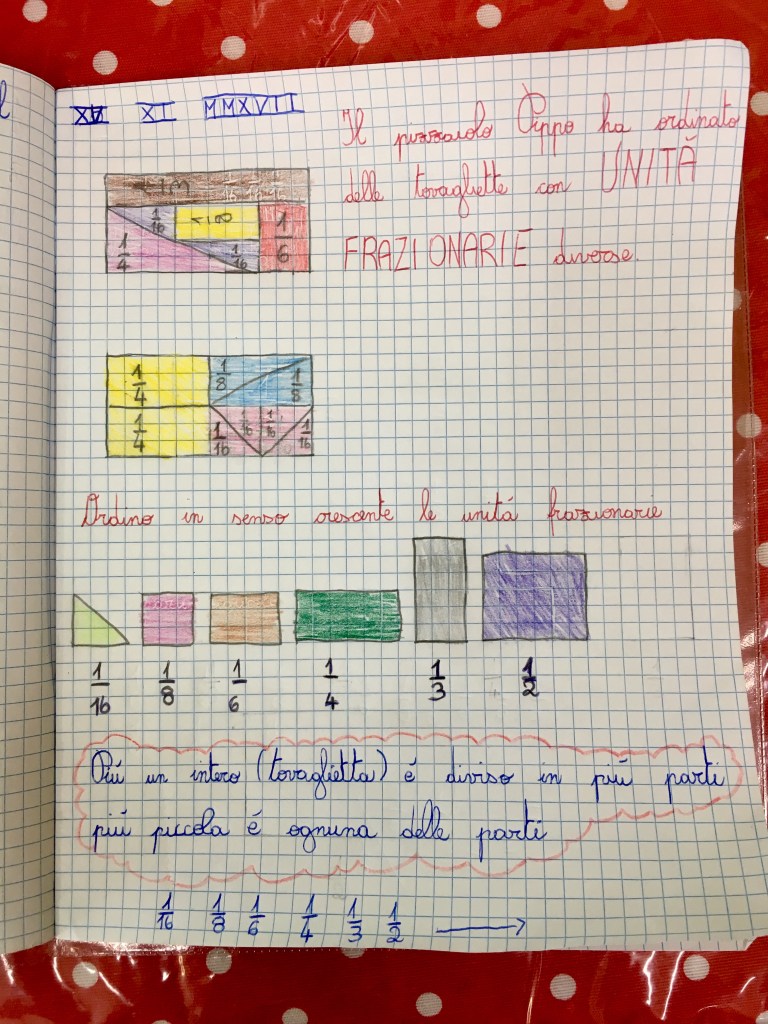 XI MMXVII
Il pizzaiolo Pippo ha ordinato
delle tovagliette con UNITÀ
FRAZIONARIE diverse.
1/16
1/4 1/16 1/6
1/4 1/8 1/8
1/4 1/16 1/16 1/16 1/16
Ordino in senso crescente le unitá frazionarie
1/16 1/8 1/6 1/4 1/3 1/2
Piú un intero (tovaglietta) é diviso in piú parti
piú piccola é ognuna delle parti
1/16 1/8 1/6 1/4 1/3 1/2